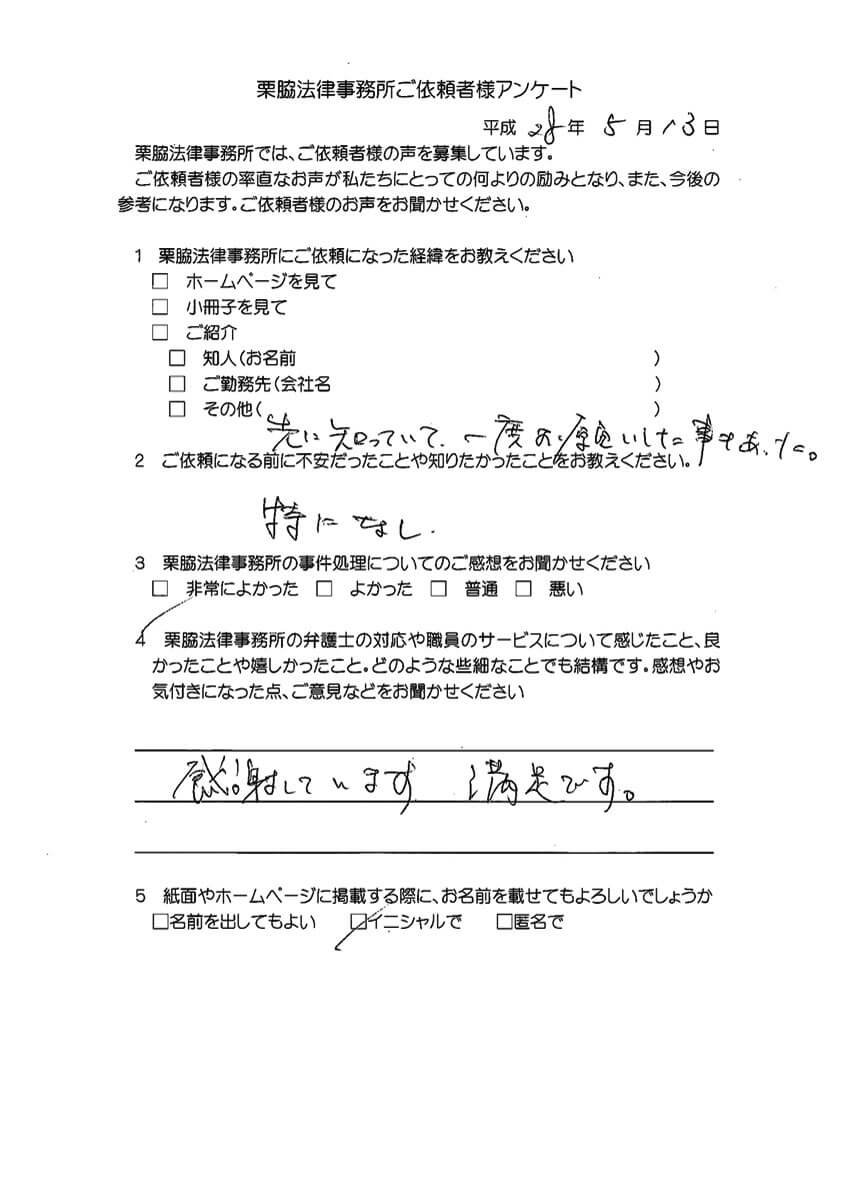 栗脇法律事務所ご依頼者様アンケート
平成 28 年 5 月 13 日
栗脇法律事務所では、ご依頼者様の声を募集しています。
ご依頼者様の率直なお声が私たちにとっての何よりの励みとなり、また、今後の
参考になります。ご依頼者様のお声をお聞かせください。
1 栗脇法律事務所にご依頼になった経緯をお教えください
□ ホームページを見て
□ 小冊子を見て
□ ご紹介
□ 知人(お名前 )
□ ご勤務先(会社名 )
□ その他( )
先に知っていて、一度お願いした事もあった。
2 ご依頼になる前に不安だったことや知りたかったことをお教えください。
特になし.
3 栗脇法律事務所の事件処理についてのご感想をお聞かせください
□ 非常によかった □ よかった □ 普通 □ 悪い
4 栗脇法律事務所の弁護士の対応や職員のサービスについて感じたこと、良
かったことや嬉しかったこと。どのような些細なことでも結構です。感想やお
気付きになった点、ご意見などをお聞かせください
感謝しています 満足です。
5 紙面やホームページに掲載する際に、お名前を載せてもよろしいでしょうか
□名前を出してもよい □イニシャルで □匿名で